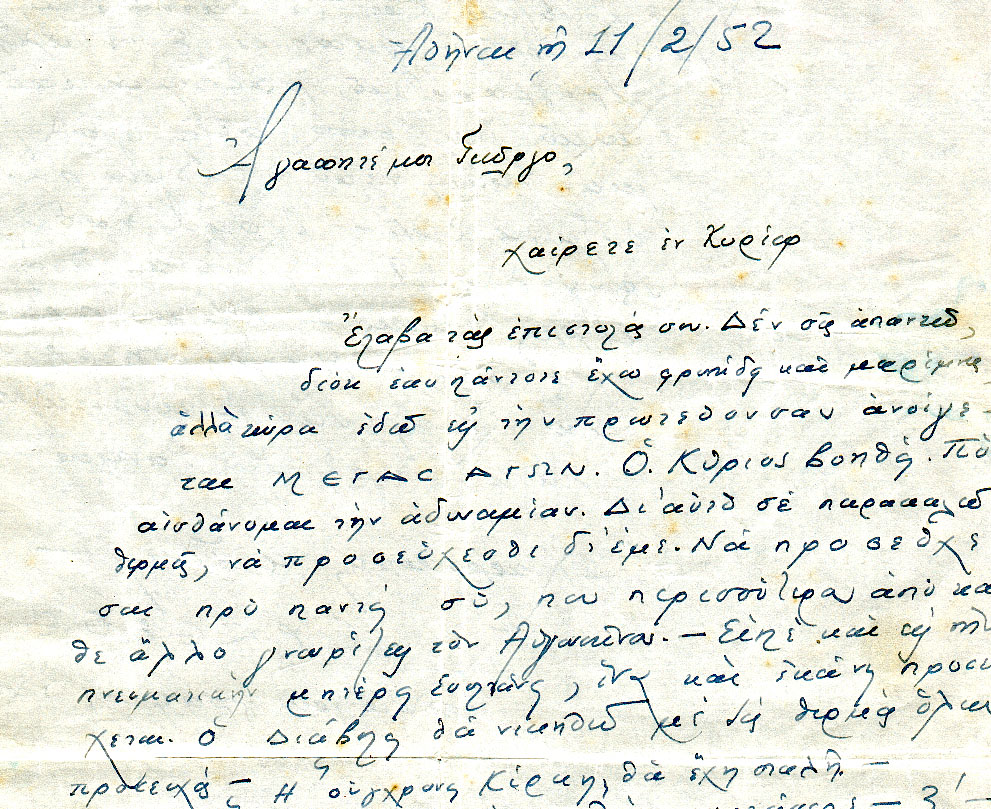 Ἀθῆναι τῇ 11/2/52
Ἀγαπητέ μοι Γιῶργο,
χαίρετε ἐν Κυρίῳ
Ἔλαβα τὰς ἐπιστολάς σου. Δὲν σᾶς ἀπαντῶ,
διότι πάντοτε ἔχω φροντίδα καὶ μερίμνας
ἀλλὰ τώρα ἐδῶ εἰς τὴν πρωτεύουσαν ἀνοίγε-
ται ΜΕΓΑΣ ΑΓΩΝ. Ὁ Κύριος βοηθός. Πὸ
αἰσθάνομαι τὴν ἀδυναμίαν. Δι' αὐτὸ σὲ παρακαλῶ
θερμῶς, νὰ προσεύχεσθε δι' ἐμέ. Νὰ προσεύχε
σαι πρὸ παντὸς σύ, που περισσότερο ἀπὸ κά
θε ἄλλο γνωρίζεις τὸν Αὐγουστῖνον. – Εἰπὲ καὶ εἰς τὴν
πνευματικὴν μητέρα , ἵνα καὶ ἐκείνη προσεύ
χεται. Ὁ Διάβολος θὰ νικηθῇ μὲ τὰς θερμὰς ὅλων
προσευχάς – Ἡ σύγχρονη Κίρκη, θὰ ἔχῃ –